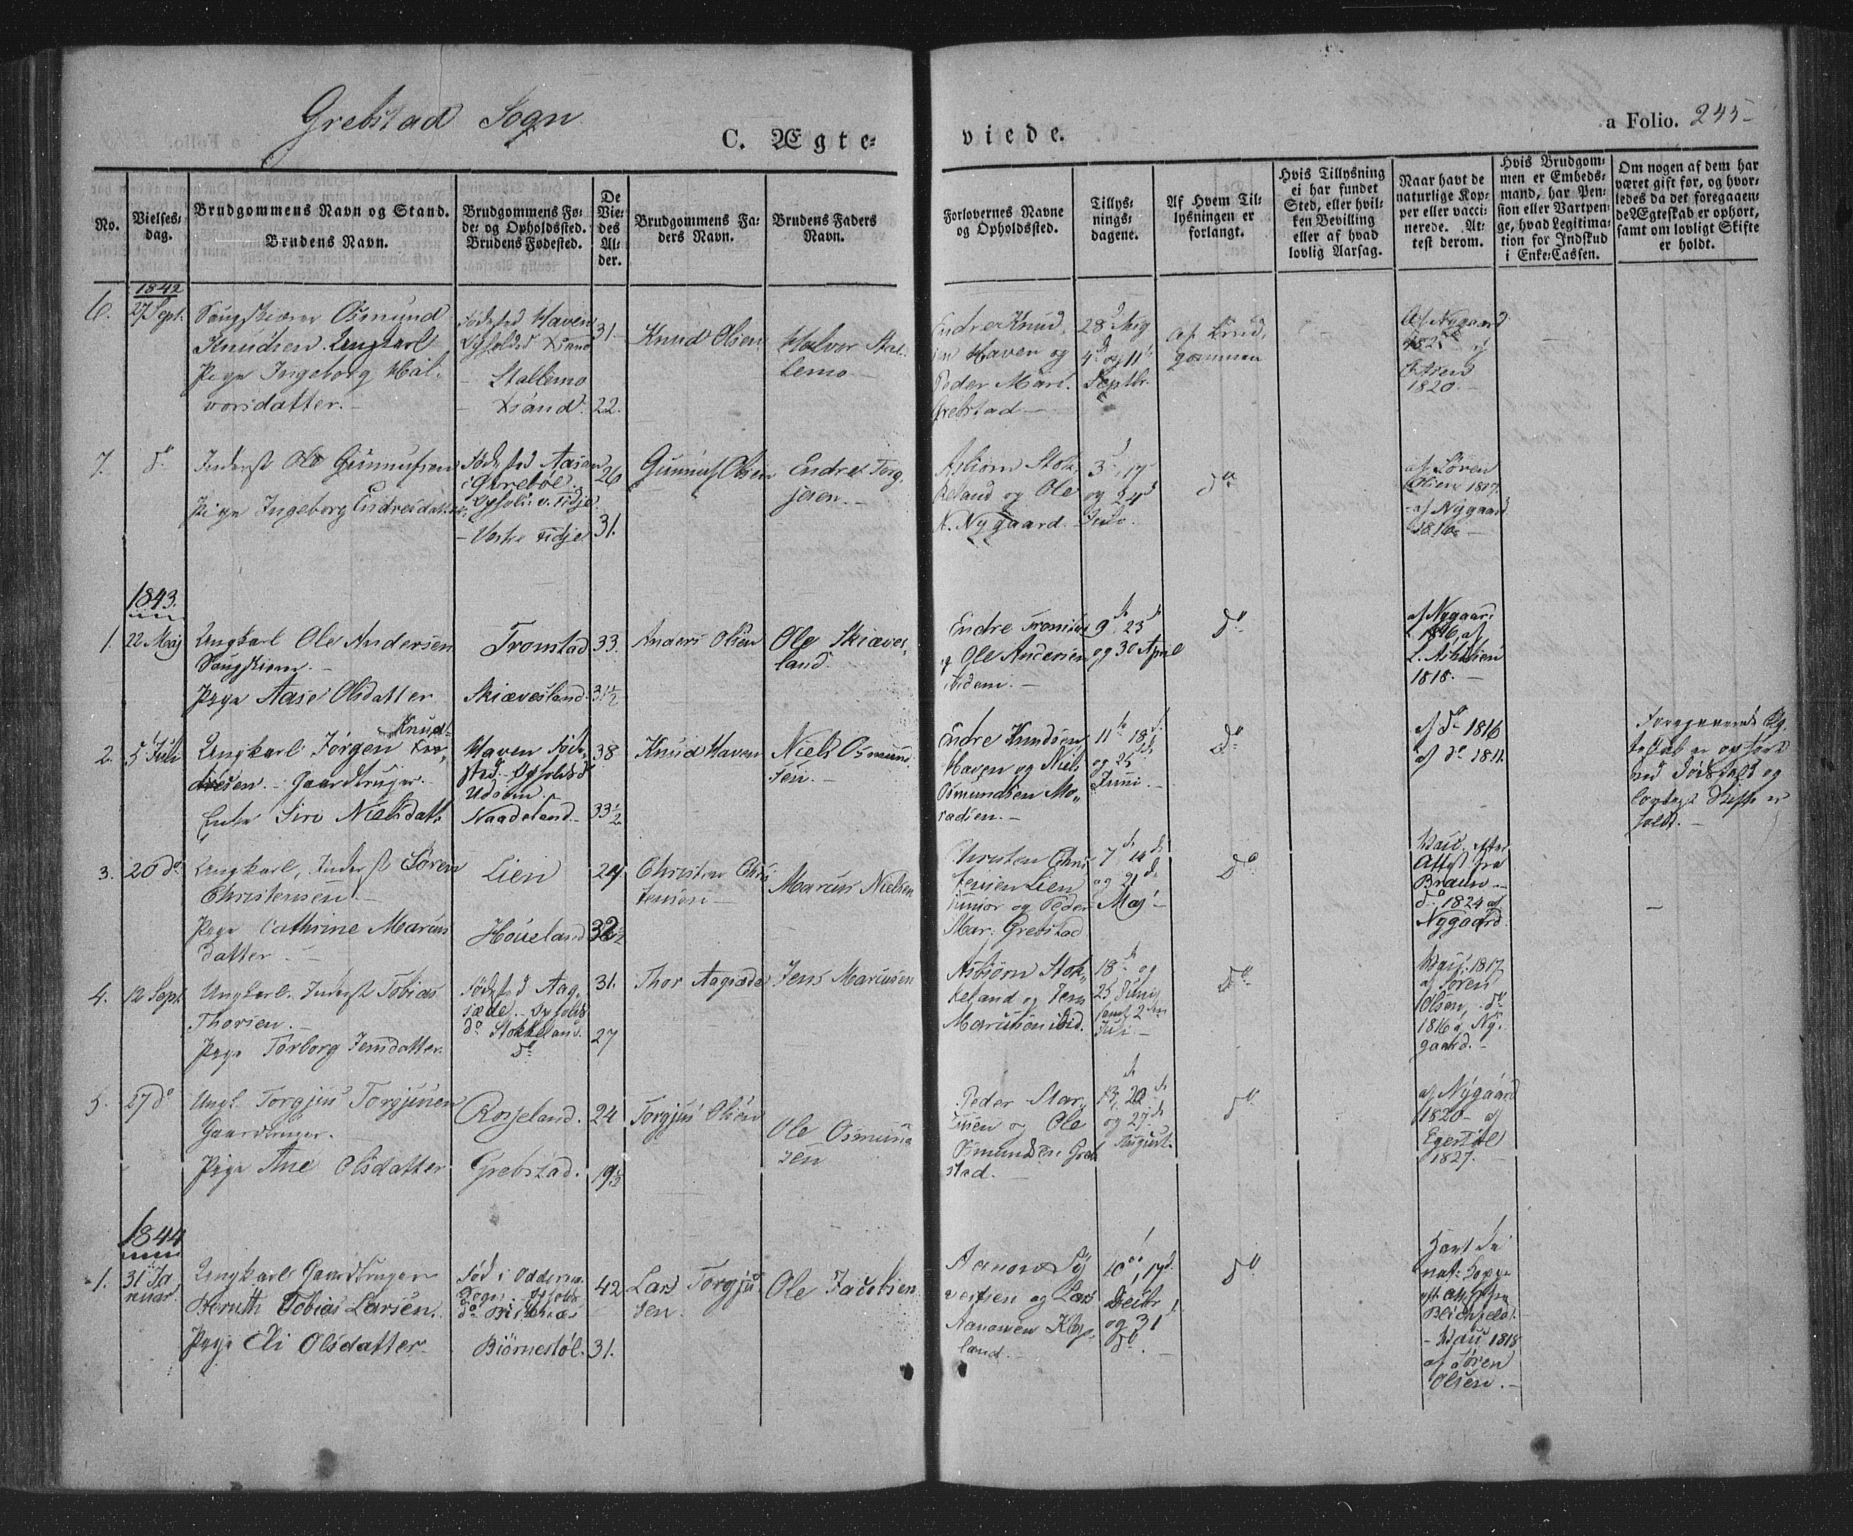 Grebstad Sogn
C. Ægte-
viede.
a Folio. 245
No.
Vielses-
dag.
Brudgommens Navn og Stand.
Brudens Navn.
Brudgommens Fø-
de- og Opholdssted.
Brudens Fødested.
De
Vie-
des
Al-
der.
Brudgommens Fa-
ders Navn.
Brudens Faders
Navn.
Forlovernes Navne
og Opholdssted.
Tillys-
nings-
dagene.
Af Hvem Til-
lysningen er
forlangt.
Hvis Tillysning
ei har fundet
Sted, eller hvil-
ken Bevilling
eller af hvad
lovlig Aarsag.
Naar havt de
naturlige Kop-
per eller vacci-
nerede. At-
test derom.
Hvis Brudgom-
men er Embeds-
mand, har Pen-
sion eller Vartpen-
ge, hvad Legitima-
tion for Indskud
i Enke-Cassen.
Om nogen af dem har
været gift før, og hvor-
ledes da det foregaaen-
de Ægteskab er ophørt,
samt om lovligt Skifte
er holdt.
1842
6. 27 Sept.
Osmund
Knudsen Ungkarl
Pige Ingeborg Hal-
vorsdatter.
Fødested Haven
Stallemo
31
22.
Knud Olsen
Halvor Stal-
lemo
Endre Knud-
sen Haven og
Peder Mart.
Grebstad
28 Aug
4 og 11
Septbr.
af Brud-
gommen
af Nygaard
1820.
7. do
Inderst Ole Gunnufsen
Pige Ingeborg Endresdatter
Fødested Aasan
i Øvrebøe.
Vestre Tidje
26
31.
Gunnuf Olsen
Endre Torg-
jersen.
Asbiørn Stok-
keland og Ole
A. Nygaard.
3, 17
og 24
Julo.
do
af Søren
Olsen 1817.
af Nygaard
1816.
1843.
1. 22 Maj
Ungkarl Ole Andersen
Pige Aase Olsdatter
Tronstad
Skiævesland.
33.
31 1/2
Anders Olsen
Ole Skiæves-
land.
Endre Tronstad
og Ole Andersen
ibidem.
9, 23
og 30 April
do
af Nygaard
1816, af
1818.
2. 5 Juli
Ungkarl Jørgen Knud-
Gaardbruger.
Enke Siro Nielsdatt.
Haven Føde-
sted. Opholdsd
Naadeland
38
33 1/2
Knud Haven
Niels Osmund-
sen.
Endre Knudsen
Haven og Niels
Osmundsen Mo-
11 18
og 25
Juni.
Do
af do 1816
af do 1811.
Foregaaende Æg-
teskab er ophørt
ved Dødsfald og
lovligt Skifte er
holdt.
3. 20 do
Ungkarl, Inderst Søren
Christensen.
Pige Cathrine Marcus
datter
Lien
Høieland
24
32
Christen Chris
tensen
Marcus Nielsen
Christen Chris
tensen Lien
junior og Peder
Mar. Grebstad
7 14
og 21
Maj
Do
Attest fra
Braun
do 1824 af
Nygaard
4. 12 Sept.
Ungkarl. Inderst Tobias
Thorsen.
Pige Torborg Jensdatter
Fødested Aag-
sæde. Opholds
do Stokkeland.
do
31.
27
Thor Aagsæde
Jens Marcusen
Asbiørn Stok-
keland og Jens
Marcusen ibid.
18 og
25 Juni
samt 2
Juli.
Do
Vac. 1817
af Søren
Olsen, do
1816 af Ny-
gaard.
5. 27 do
Ungk. Torgjus Torgjusen
Gaardbruger.
Pige Ane Olsdatter
Rosseland.
Grebstad.
24
19
Torgjus Olsen
Ole Osmund
sen
Peder Mar-
cusen og Ole
Osmundsen Greb-
stad.
13, 20
og 27
August
do
af Nygaard
1820 af
Egestøl
1827.
1844
1. 31 Ja
nuar
Ungkarl Gaardbruger
Berntt Tobias Larsen.
Pige Eli Olsdatter
Fød i Oddernæ
Sogn. Ophold
Biørnestøl.
42
31.
Lars Torgju
sen.
Ole Jacobsen
Aanon Sy-
vertsen og Lars
Aanonsen
land.
10, 17
Decbr
og 31
do.
do
Havt de
nat: Koppe
eft. Attest fra
Bleichfeldt.
Vac 1818
af Søren
Olsen.